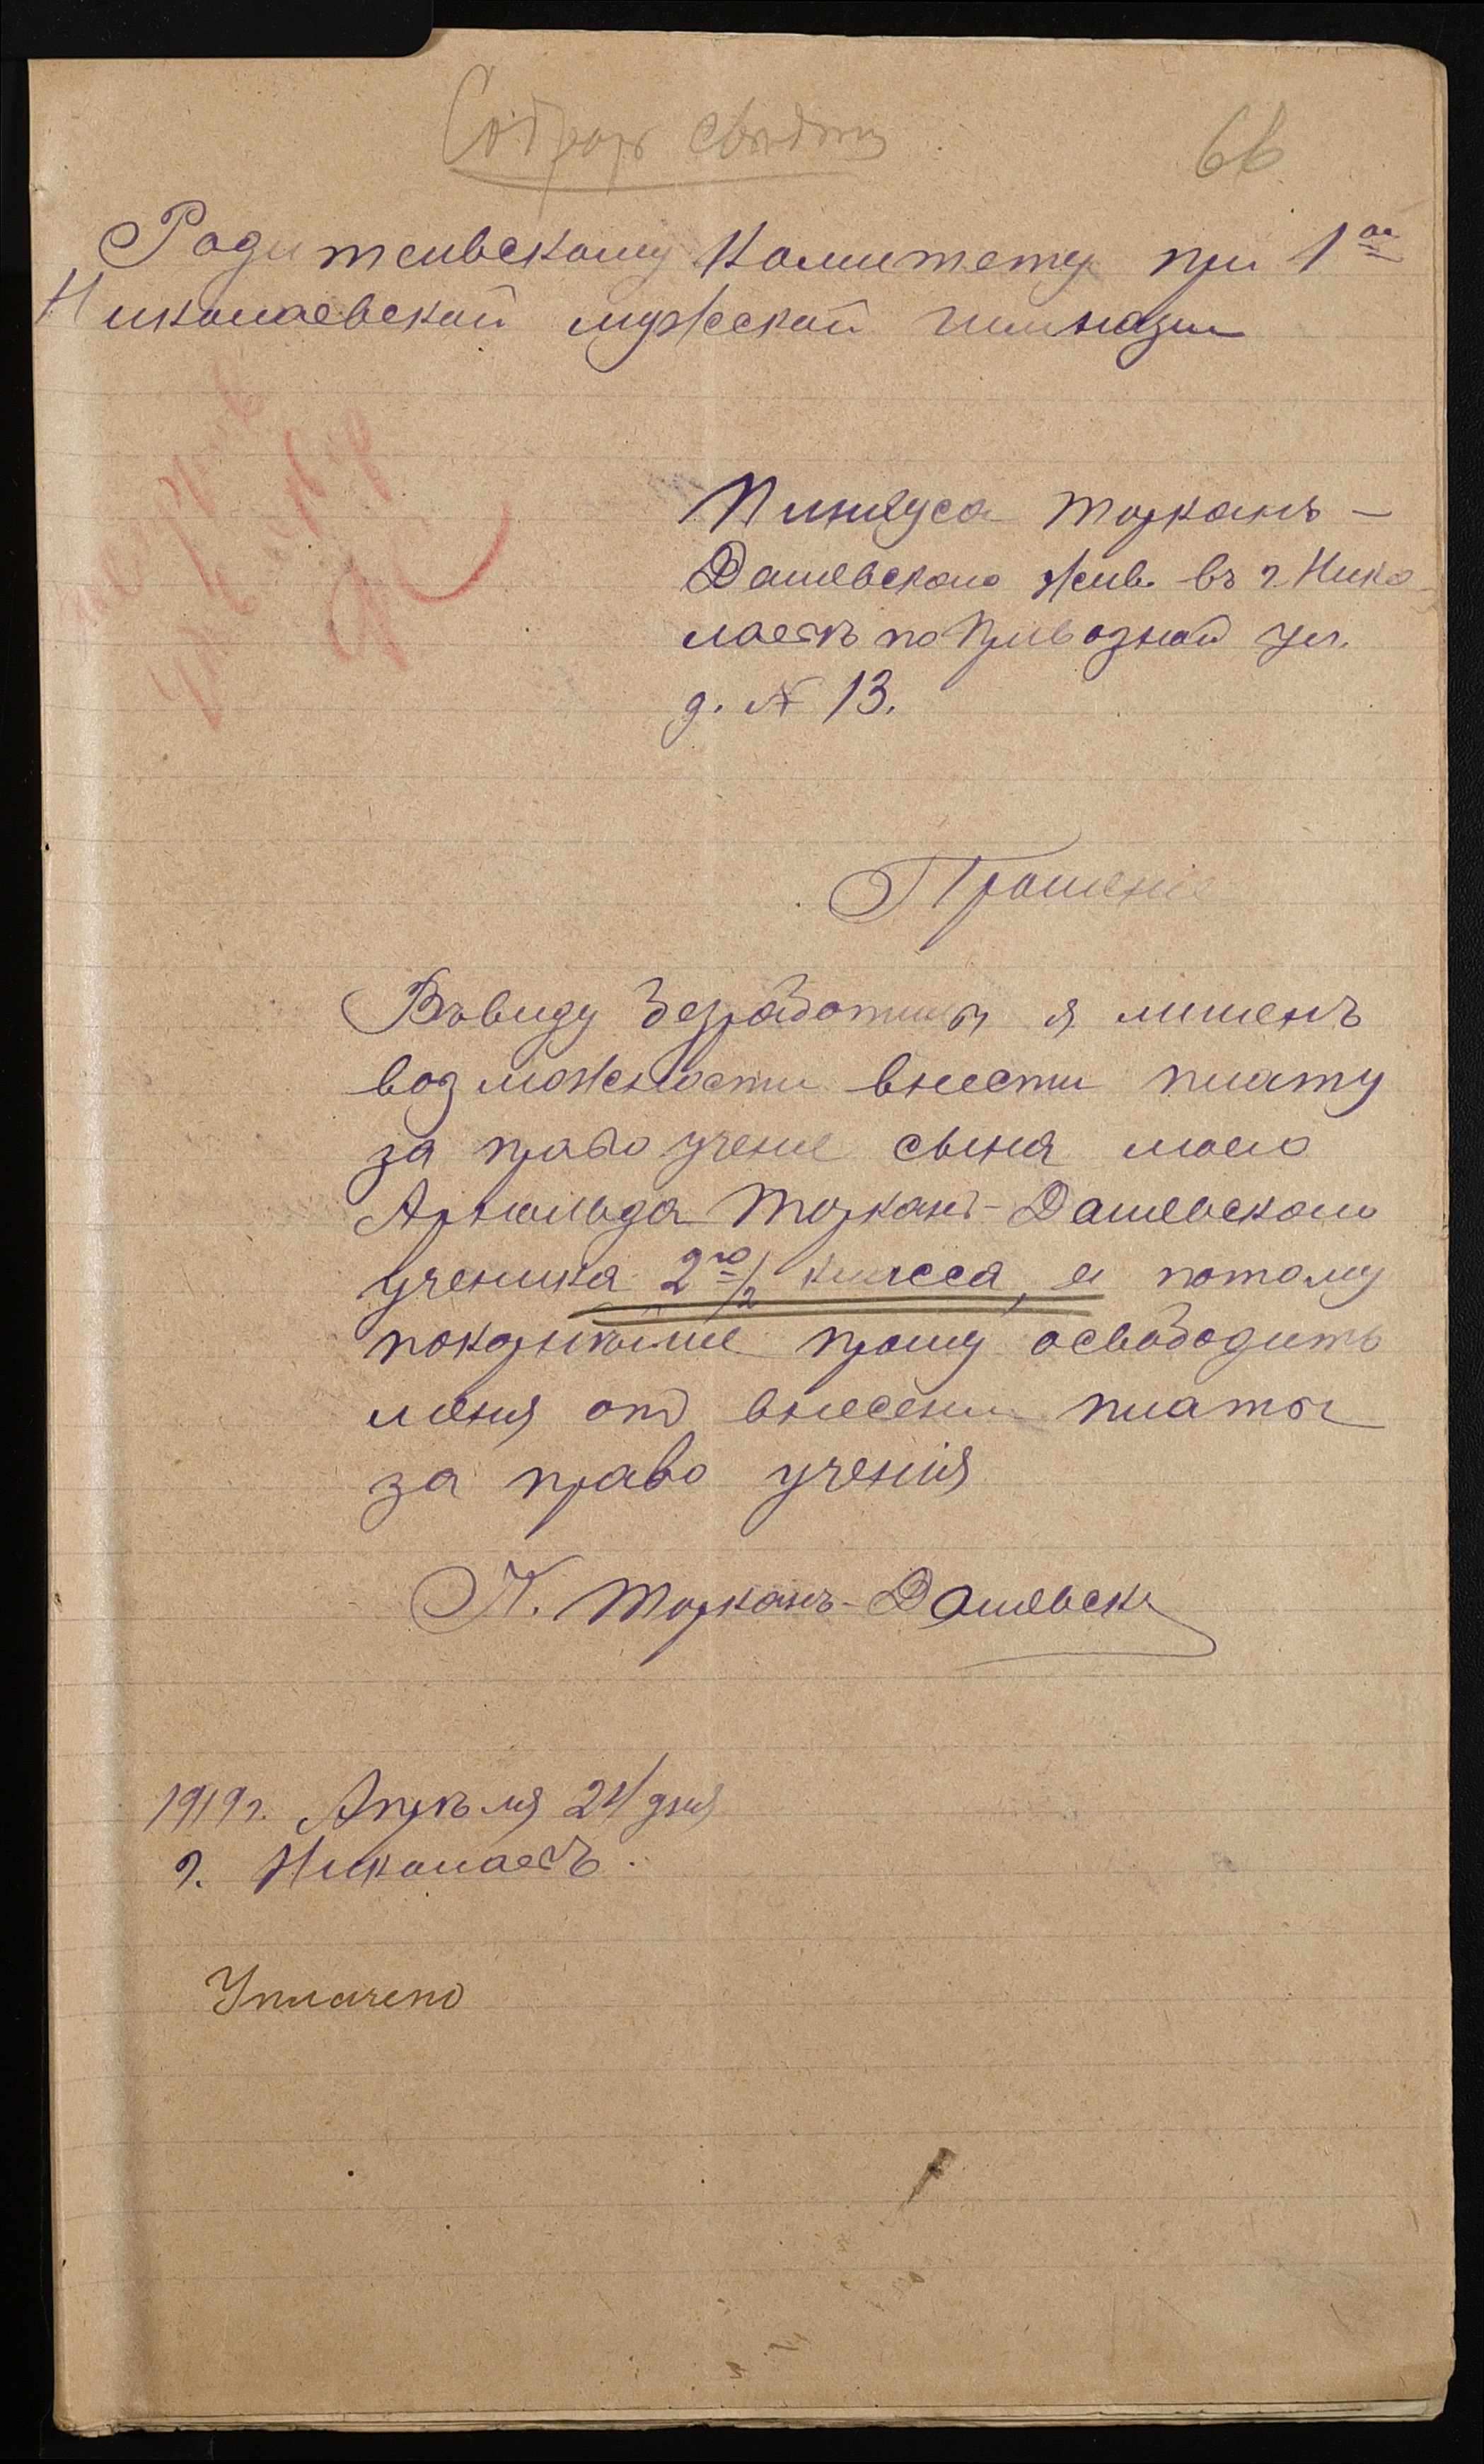 66
Родительскому Комитету при 1ой
Николаевской мужской гимназии
Пинхуса Торканъ-
Дашевскаго жив. въ г. Нико
лаевѣ по Привозной ул.
д. № 13.
Прошеніе
Въвиду безработицы я лишенъ
возможности внести плату
за право учение сына моего
Арнольда Торканъ-Дашевскаго
ученика 2го/2 класса, а потому
покорнѣйше прошу освободить
меня отъ внесении платы
за право ученія
П. Торканъ-Дашевски
1919 г. Апрѣля 24 дня
г. Николаевъ.
Уплачено